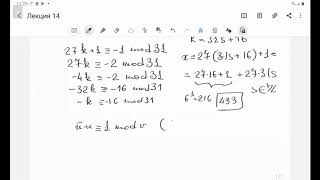 Лекция 14
27k+1≡-1 mod 31
27k≡-2 mod 31
-4k≡-2 mod 31
-32k≡-16 mod 31
-k≡-16 mod 31
ūu≡1 mod v (
k=31s+16
x=27(31s+16)+1=
=27·16+1+27·31s
s∈ℤ
6³=216 433